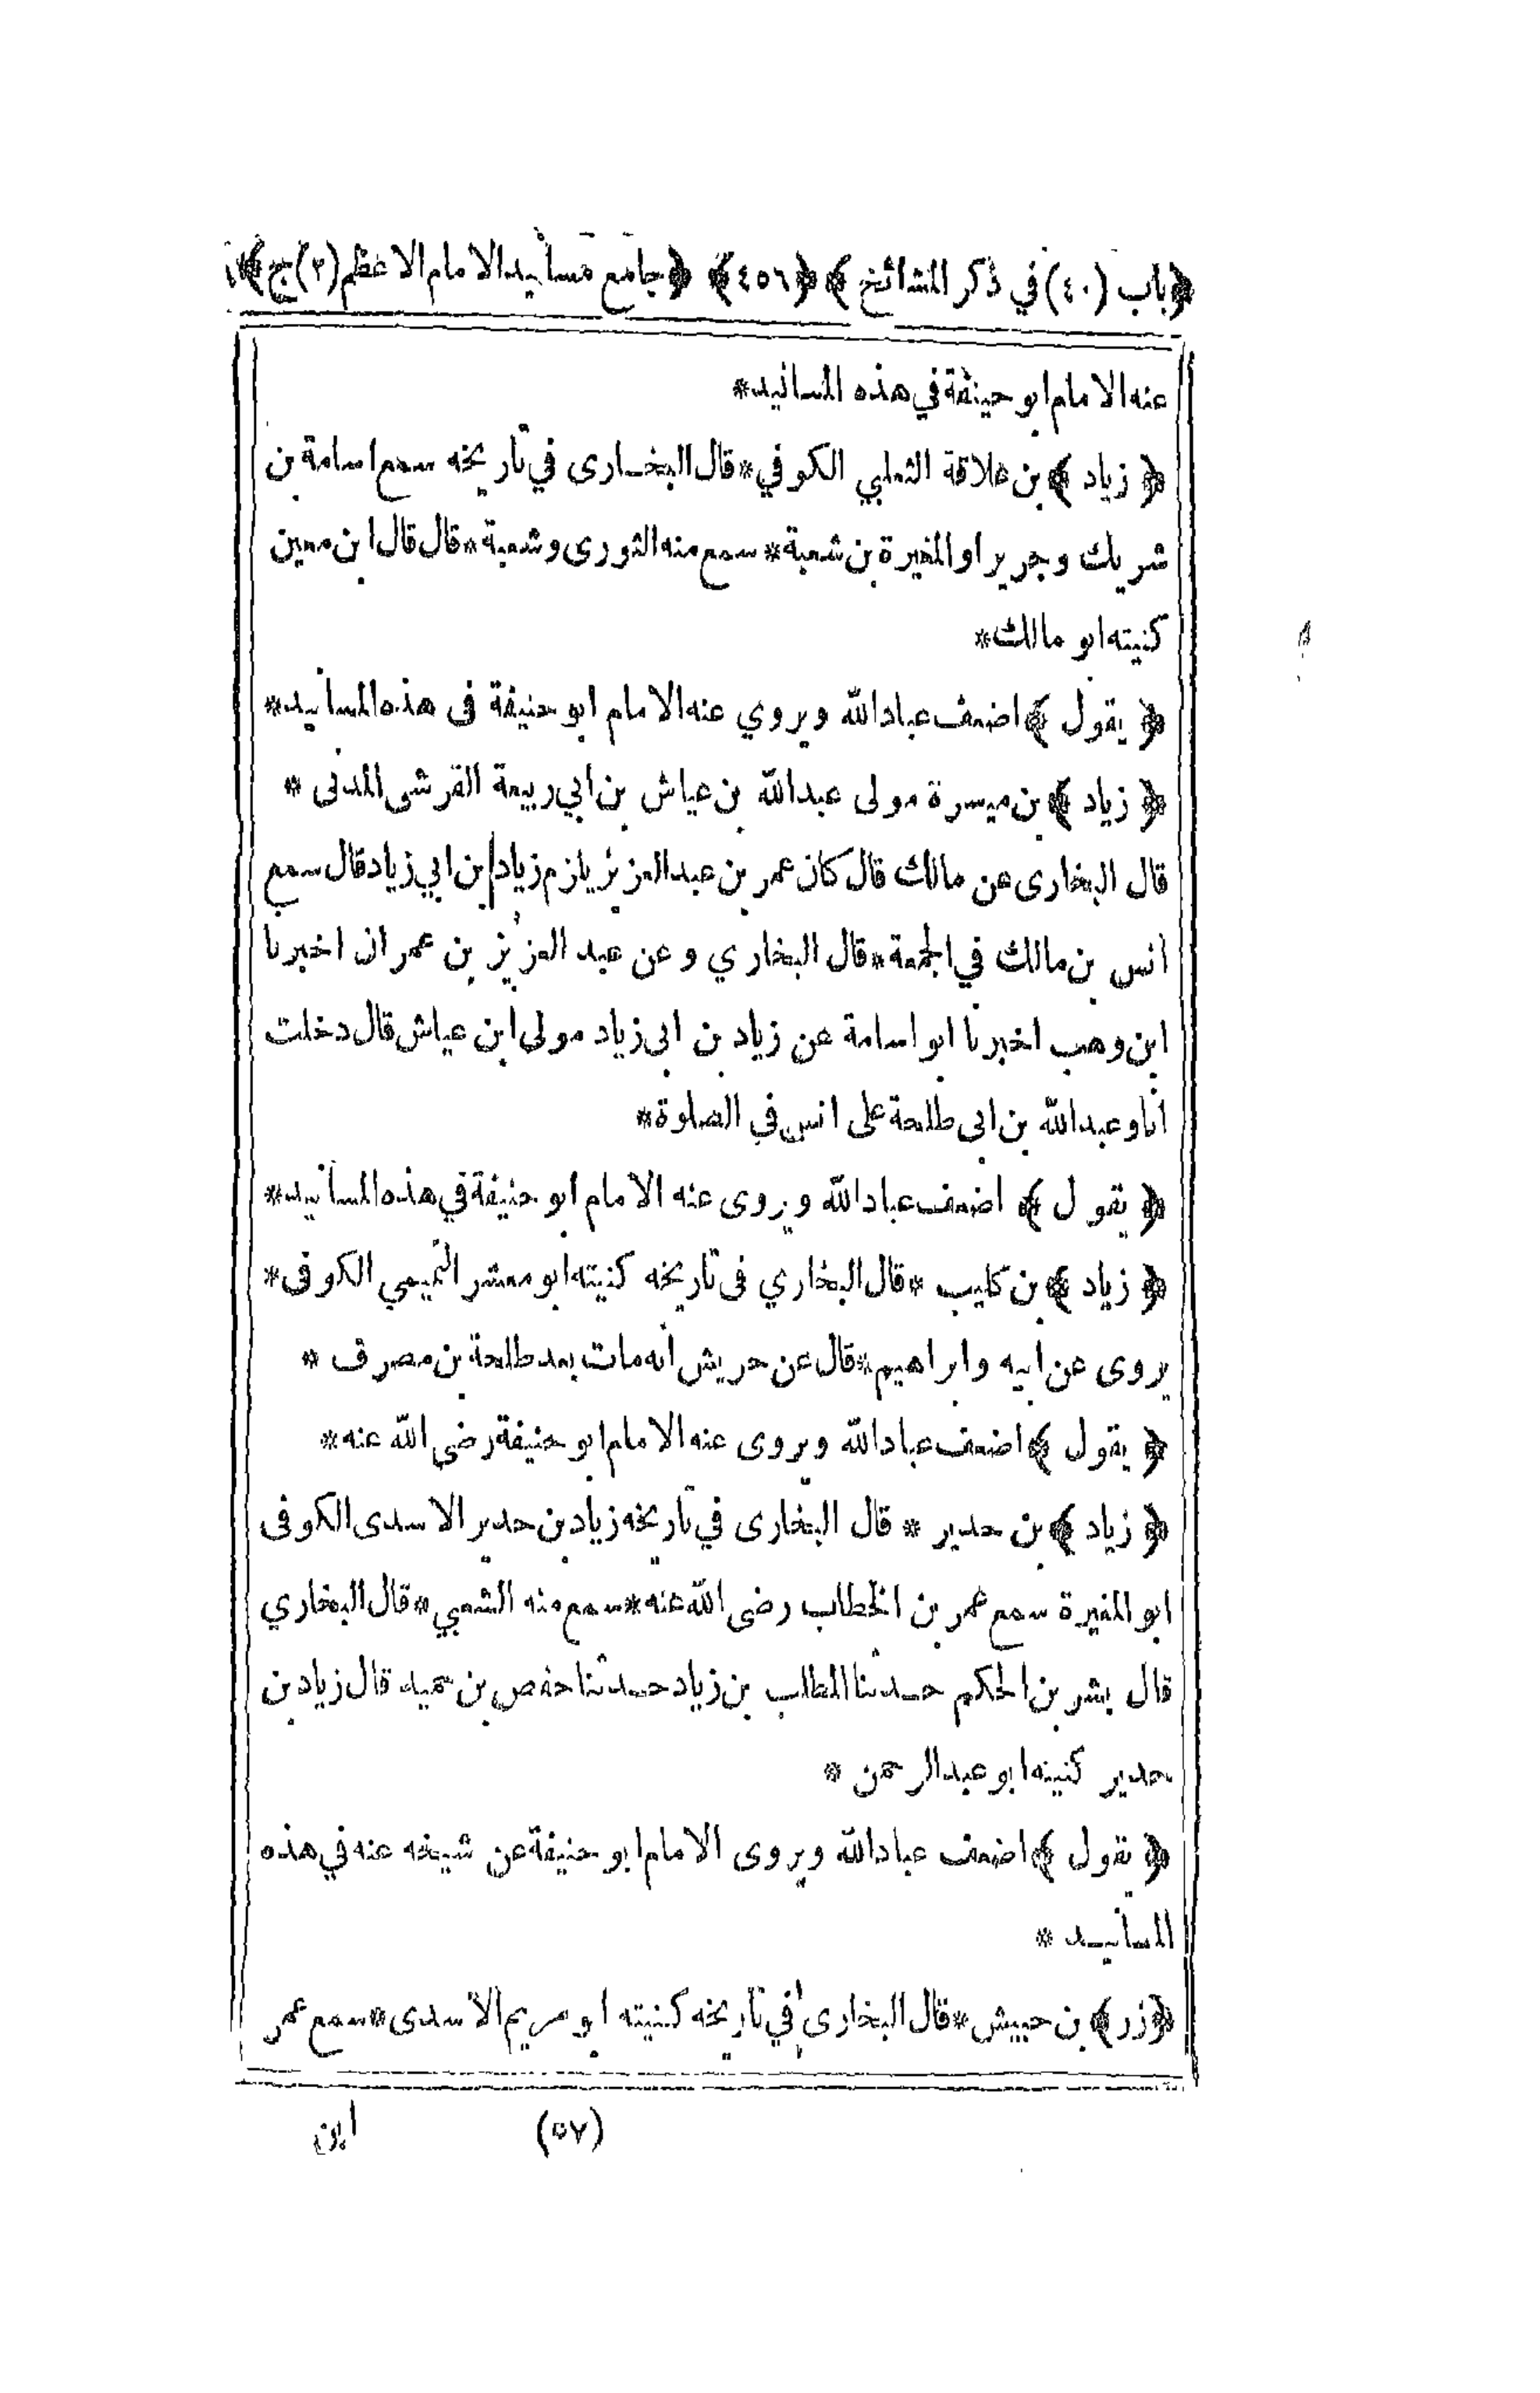 ﴿باب (٤٠) في ذكر المشائخ﴾ ﴿٤٥٦﴾ ﴿جامع مسانيد الامام الاعظم (٢) ج﴾
عنه الامام ابو حنيفة في هذه المسانيد*
﴿زياد﴾ بن علاقة الثعلبي الكوفي*قال البخارى في تاريخه سمع اسامة بن
شريك وجريرا والمغيرة بن شعبة*سمع منه الثورى وشعبة*قال قال ابن معين
كنيته ابو مالك*
﴿يقول﴾ اضعف عباد الله ويروي عنه الامام ابو حنيفة فى هذه المسانيد*
﴿زياد﴾ بن ميسرة مولى عبد الله بن عياش بن ابي ربيعة القرشى المدنى *
قال البخارى عن مالك قال كان عمر بن عبد العزيز يلزم زياد ابن ابي زياد قال سمع
انس بن مالك في الجمعة*قال البخاري وعن عبد العزيز بن عمران اخبرنا
ابن وهب اخبرنا ابو اسامة عن زياد بن ابى زياد مولى ابن عياش قال دخلت
انا وعبد الله بن ابى طلحة على انس في الصلوة*
﴿يقول﴾ اضعف عباد الله ويروى عنه الامام ابو حنيفة في هذه المسانيد*
﴿زياد﴾ بن كليب *قال البخاري فى تاريخه كنيته ابو معشر التميمي الكوفى*
يروى عن ابيه وابراهيم*قال عن حريش انه مات بعد طلحة بن مصرف *
﴿يقول﴾ اضعف عباد الله ويروى عنه الامام ابو حنيفة رضى الله عنه*
﴿زياد﴾ بن حدير * قال البخارى في تاريخه زياد بن حدير الاسدى الكوفى
ابو المغيرة سمع عمر بن الخطاب رضى الله عنه*سمع منه الشعبي*قال البخاري
قال بشر بن الحكم حدثنا المطلب بن زياد حدثنا حفص بن حميد قال زياد بن
حدير كنيته ابو عبد الرحمن *
﴿يقول﴾ اضعف عباد الله ويروى الامام ابو حنيفة عن شيخه عنه في هذه
المسانيد *
﴿زر﴾ بن حبيش*قال البخارى في تاريخه كنيته ابو مريم الاسدى*سمع عمر
(٥٧) ابن